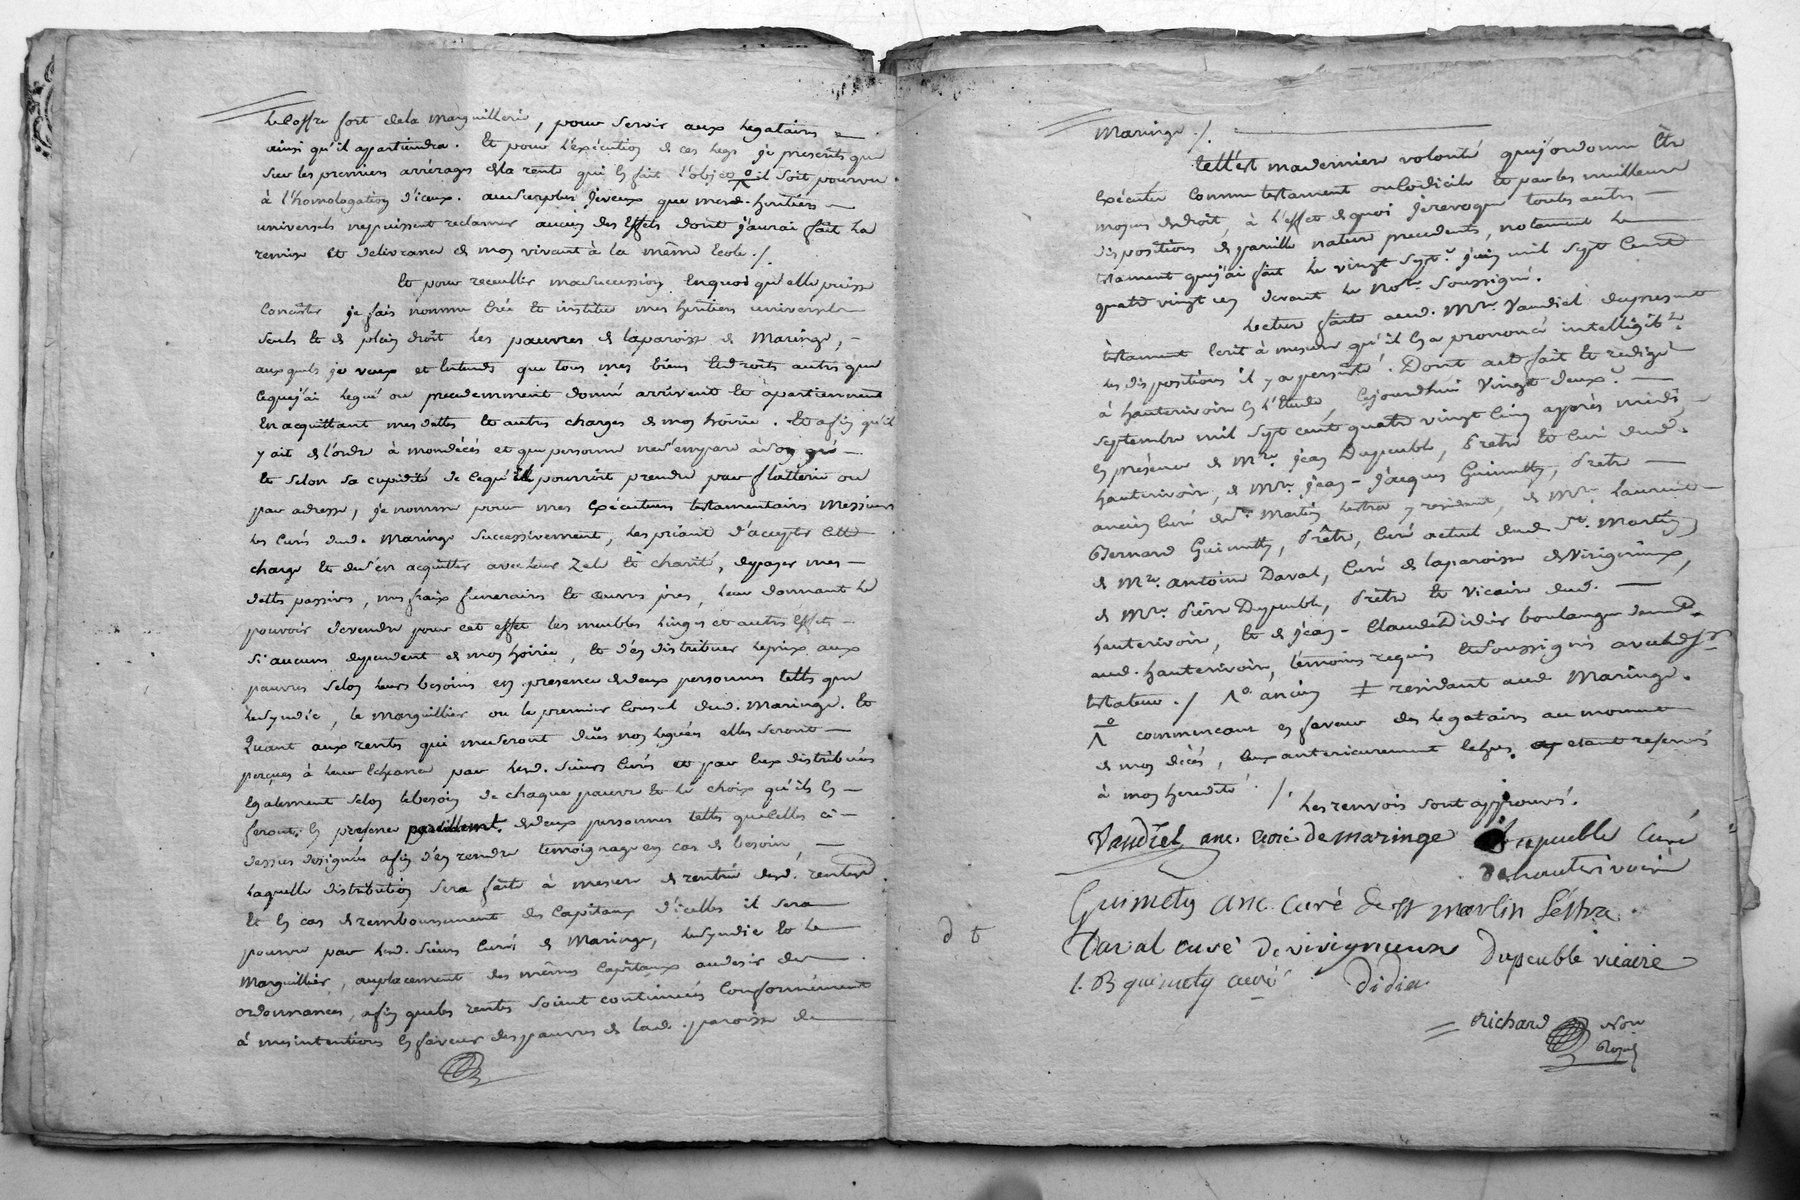 le coffre fort dela marguillerie, pour servir aux legataires
ainsi qu'il appartiendra. Et pour l'exécution de ces legs je prescrits que
sur les premiers arrérages de la rente qui en fait l'objet il soit pourvu
à l'homologation d'iceux. au surplus je veux que mesd. héritiers
universels ne puissent reclamer aucun des effets dont j'aurai fait la
remise et delivrance de mon vivant à la même Ecole ./.
Et pour recueillir ma succession en quoi qu'elle puisse
consister je fais nomme crée et institue mes héritiers universels
seuls et de plein droit les pauvres de la paroisse de Maringe,
auxquels je veux et entends que tous mes biens et droits autres que
ce que j'ai legué ou precedemment donné arrivent et apartiennent
en acquittant mes dettes et autres charges de mon hoirie. Et afin qu'il
y ait de l'ordre à mon décés et que personne ne s'empare à son gré
et selon sa cupidité de ce qu'il pourroit prendre par flatterie ou
par adresse, je nomme pour mes exécuteurs testamentaires Messieurs
les curés dud. Maringe successivement, les priant d'accepter cette
charge et de s'en acquitter avec leur zele et charité, de payer mes
dettes passives, mes fraix funeraires et œuvres pies, leur donnant le
pouvoir de vendre pour cet effet les meubles linges et autres effets
si aucuns dependent de mon hoirie, et d'en distribuer le prix aux
pauvres selon leurs besoins en presence de deux personnes telles que
le syndic, le marguillier ou le premier consul dud. Maringe. Et
Quant aux rentes qui me seront dües non leguées elles seront
perçues à leur echeance par lesd. sieurs curés et par eux distribuées
également selon le besoin de chaque pauvre et le choix qu'ils en
feront. en presence pareillemt. de deux personnes telles que celles ci-
dessus designées afin d'en rendre temoignage en cas de besoin,
laquelle distribution sera faite à mesure de rentrée desd. rentes
Et en cas de remboursement des capitaux d'icelles il sera
pourvu par lesd. sieurs curés de Maringe, le syndic et le
Marguillier, au placement des mêmes capitaux au desir des
ordonnances, afin que les rentes soient continuées conformément
à mes intentions en faveur des pauvres de lad. paroisse de
Maringe ./.
telle est ma derniere volonté que j'ordonne être
exécutée comme testament ou codicile et par les meilleurs
moyens de droit, à l'effet de quoi je revoque toutes autres
dispositions de pareille nature precedentes, notament le
testament que j'ai fait le vingt sept.e juin mil sept cent
quatre vingt un devant le no.re soussigné.
Lecture faite aud. Mre. Vandiel du present
testament écrit à mesure qu'il en a prononcé intelligib.t
les dispositions il y a persisté. Dont acte fait et redigé
à hauterivoire en l'Etude, cejourdhui vingt deux.e
septembre mil sept cent quatre vingt cinq apprès midi,
en présence de Mre. jean Dupeuble, Prêtre et curé dud.
hauterivoire, de Mre. jean-jacques Guimety, Prêtre
ancien curé de St. Martin Lestra y resident, de Mre. Laurent
Bernard Guimety, Prêtre, curé actuel dud. St. Martin,
de Mre. antoine Daval, curé de la paroisse de Virigneux,
de Mre. Pierre Dupeuble, Prêtre et vicaire dud.
hauterivoire, et de jean-Claude Didier boulanger demt.
aud. hauterivoire, témoins requis et soussignés avec led. sr.
testateur ./. ancien ‡ residant aud Maringe.
commencant en faveur des legataires au moment
de mon décés, ceux anterieurement echus. etant reservés
à mon heredité ./. les renvois sont approuvés.
Vandiel anc. curé de maringe Dupeuble curé
de hauterivoire
Guimety anc. curé de st martin lestra
Daval curé de virigneux Dupeuble vicaire
l. B guimety curé Didier
d t
Richard Nore
Royal